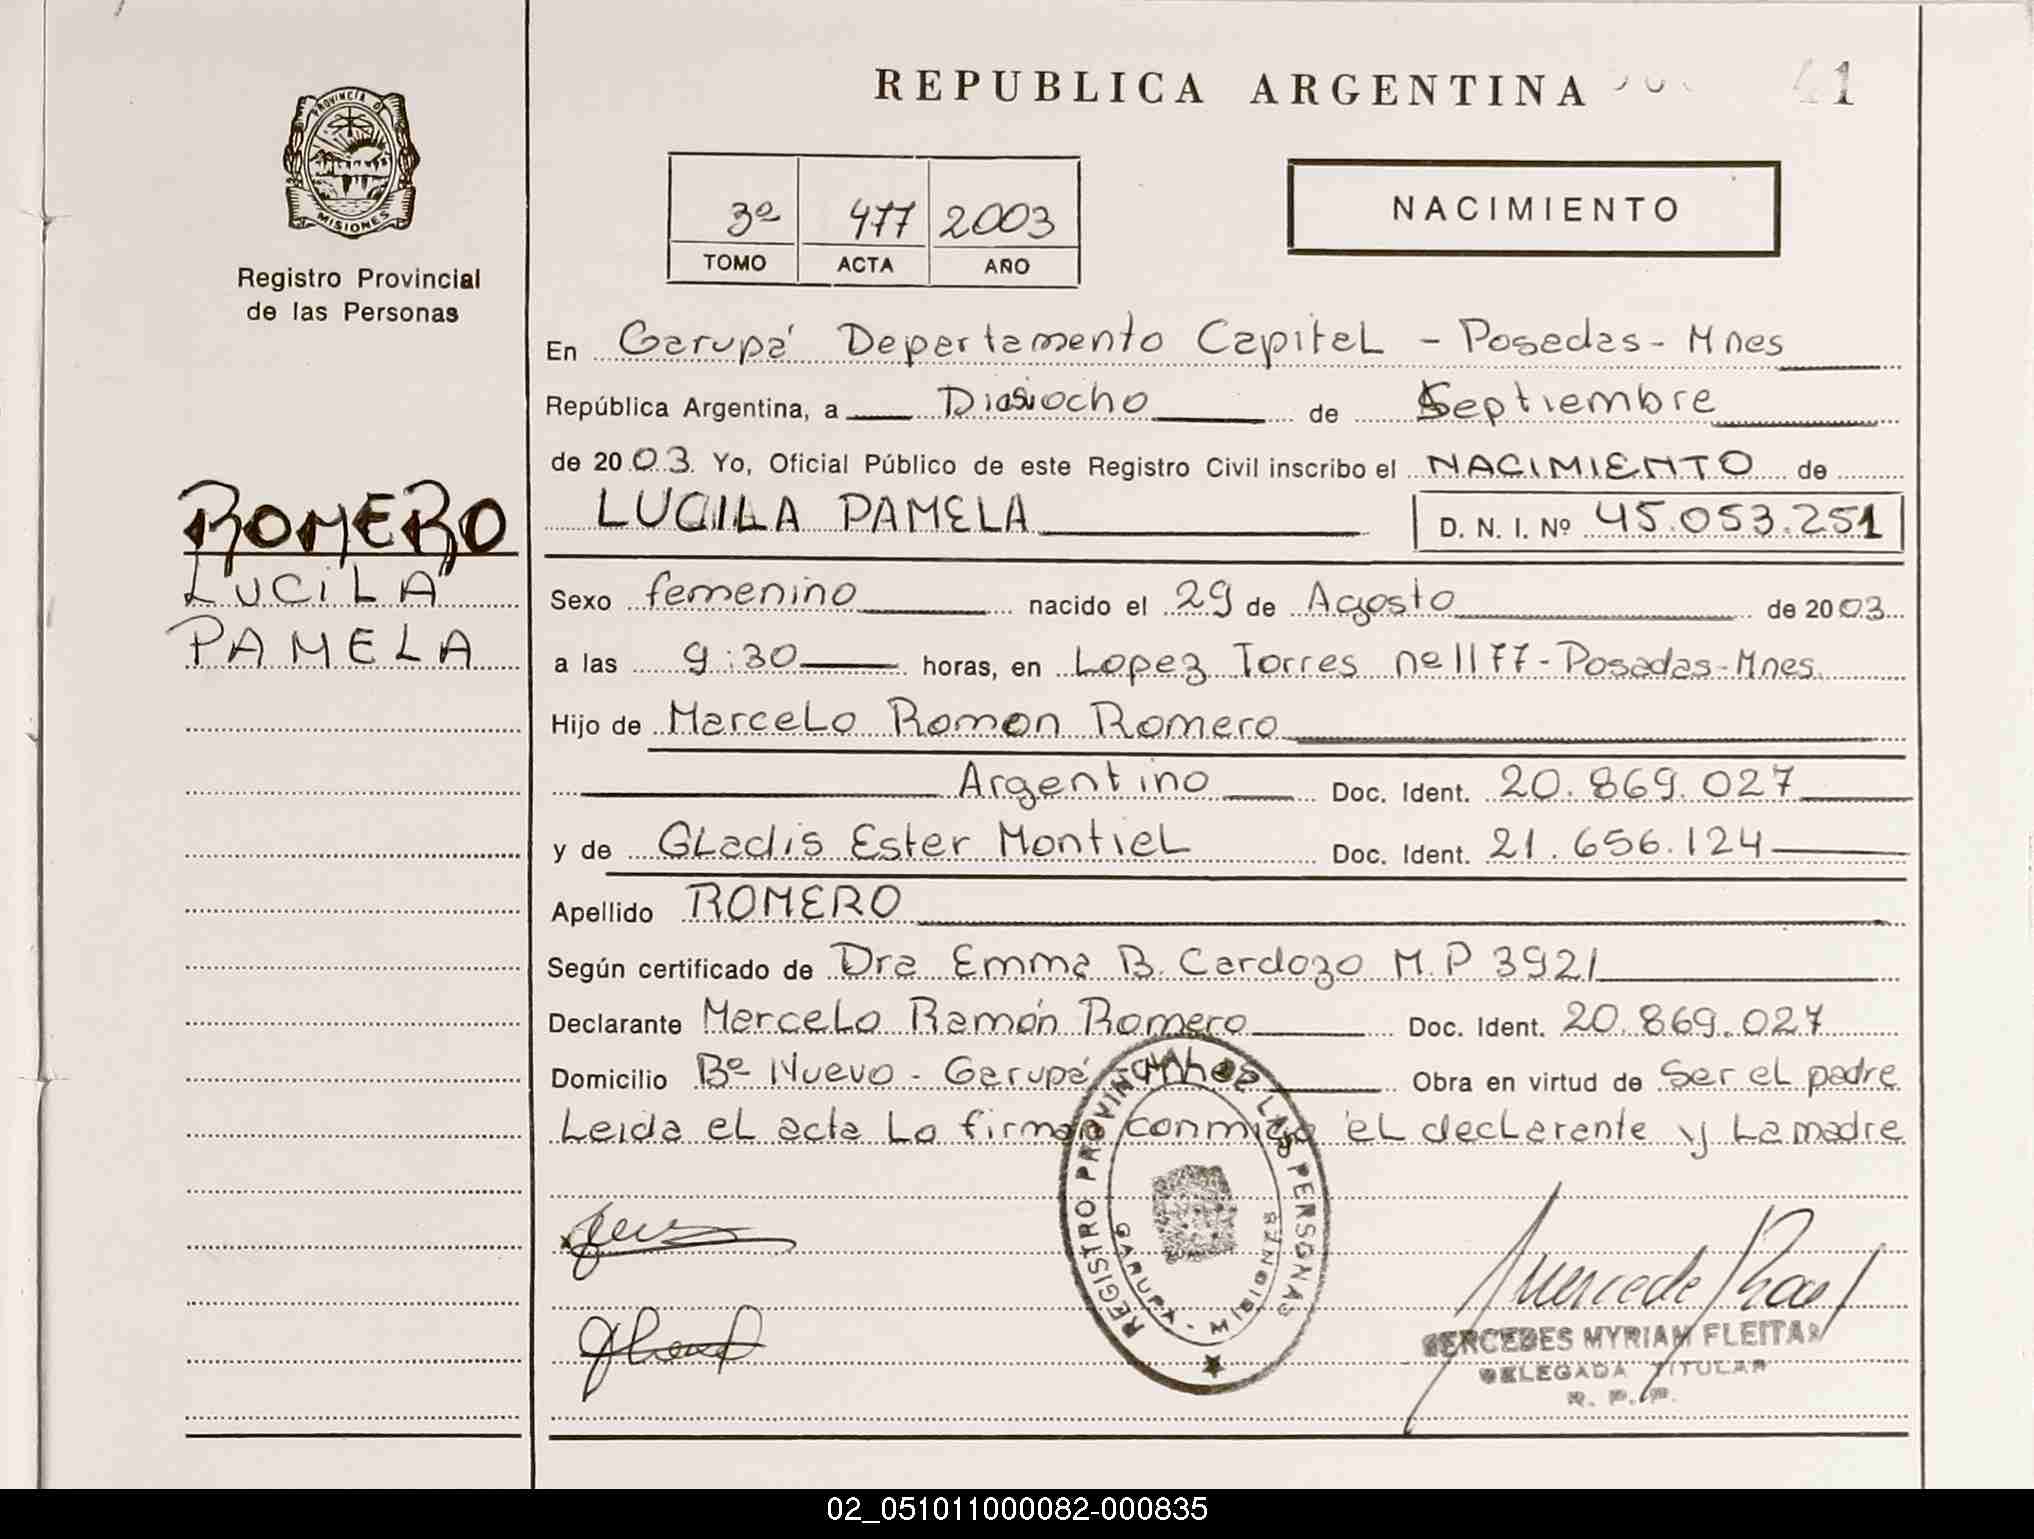 REPUBLICA ARGENTINA
41
PROVINCIA DE
MISIONES
Registro Provincial
de las Personas
3º 477 2003
TOMO ACTA AÑO
NACIMIENTO
En Garupá Departamento Capital - Posadas - Mnes
República Argentina, a Diasiocho de Septiembre
de 2003. Yo, Oficial Público de este Registro Civil inscribo el NACIMIENTO de
LUCILA PAMELA D. N. I. Nº 45.053.251
ROMERO
LUCiLA
PAMELA
Sexo femenino nacido el 29 de Agosto de 2003
a las 9:30 horas, en Lopez Torres nº 1177 - Posadas - Mnes.
Hijo de Marcelo Romon Romero
Argentino Doc. Ident. 20.869.027
y de Gladis Ester Montiel Doc. Ident. 21.656.124
Apellido ROMERO
Según certificado de Dra Emma B. Cardozo M.P 3921
Declarante Marcelo Ramón Romero Doc. Ident. 20.869.027
Domicilio Bº Nuevo - Garupá Obra en virtud de Ser el padre
Leida el acta La firman conmigo el declarante y La madre
REGISTRO PROVINCIAL DE LAS PERSONAS
GARUPA - MISIONES
MERCEDES MYRIAM FLEITAS
DELEGADA TITULAR
R. P. P.
02_051011000082-000835